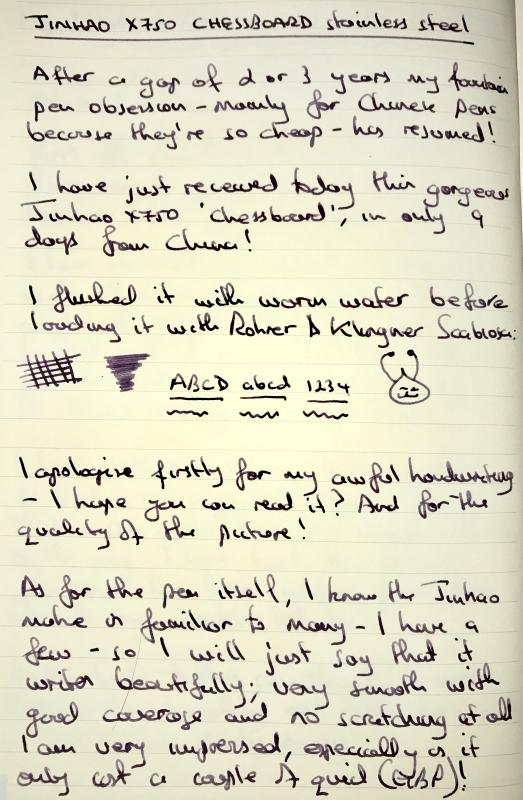 JINHAO X750 CHESSBOARD stainless steel
After a gap of 2 or 3 years my fountain
pen obsession - mainly for Chinese pens
because they're so cheap - has resumed!
I have just received today this gorgeous
Jinhao X750 'chessboard', in only 9
days from China!
I flushed it with warm water before
loading it with Rohrer & Klingner Scabiosa:
ABCD abcd 1234
I apologise firstly for my awful handwriting
- I hope you can read it? And for the
quality of the picture!
As for the pen itself, I know the Jinhao
make is familiar to many - I have a
few - so I will just say that it
writes beautifully; very smooth with
good coverage and no scratching at all
I am very impressed, especially as it
only cost a couple of quid (GBP)!